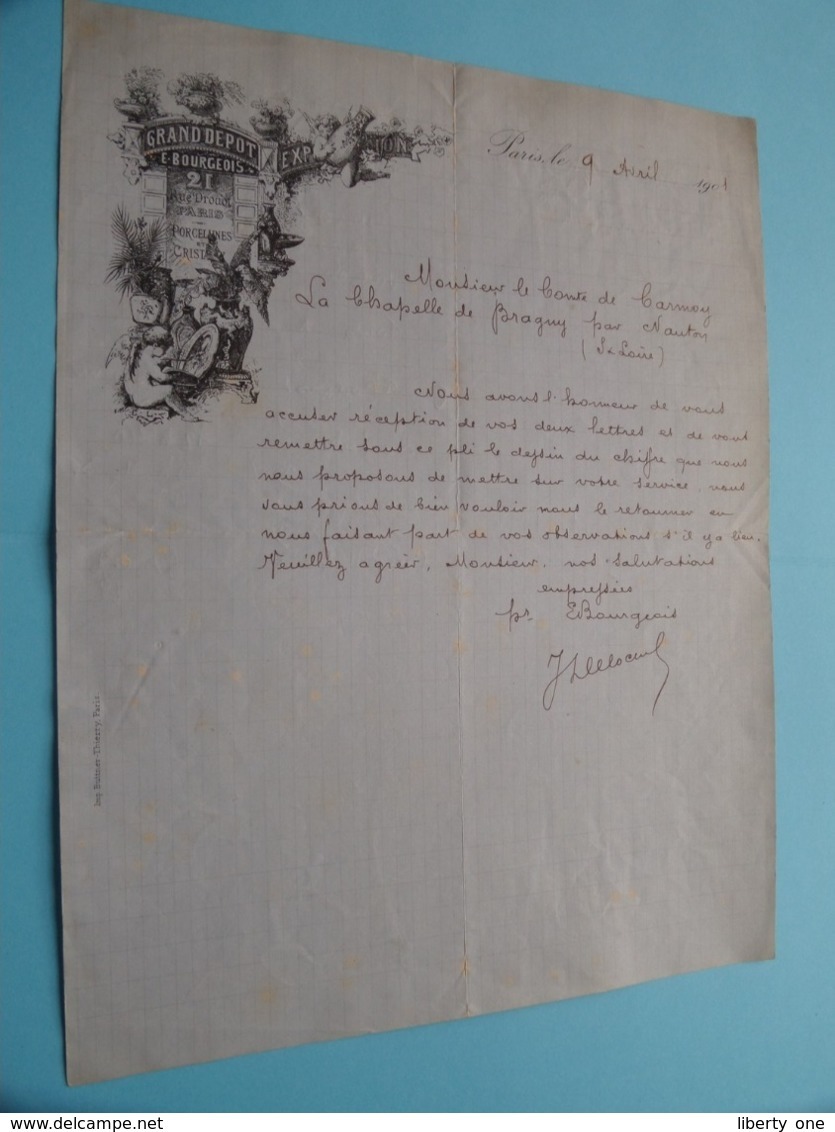 GRAND DEPOT
E. BOURGEOIS
21
Rue Drouot
PARIS
PORCELAINES
ET
CRIST
EXP ITION
Paris, le 9 Avril 1901
Monsieur le Comte de Carmoy
La Chapelle de Bragny par Nanton
(S & Loire)
Nous avons l'honneur de vous
accuser réception de vos deux lettres et de vous
remettre sous ce pli le dessin du chiffre que nous
nous proposons de mettre sur votre service, nous
vous prions de bien vouloir nous le retourner en
nous faisant part de vos observations s'il y a lieu.
Veuillez agréer, Monsieur, nos salutations
empressées
pr. EBourgeois
Imp. Buttner-Thierry, Paris.
www.delcampe.net
liberty one